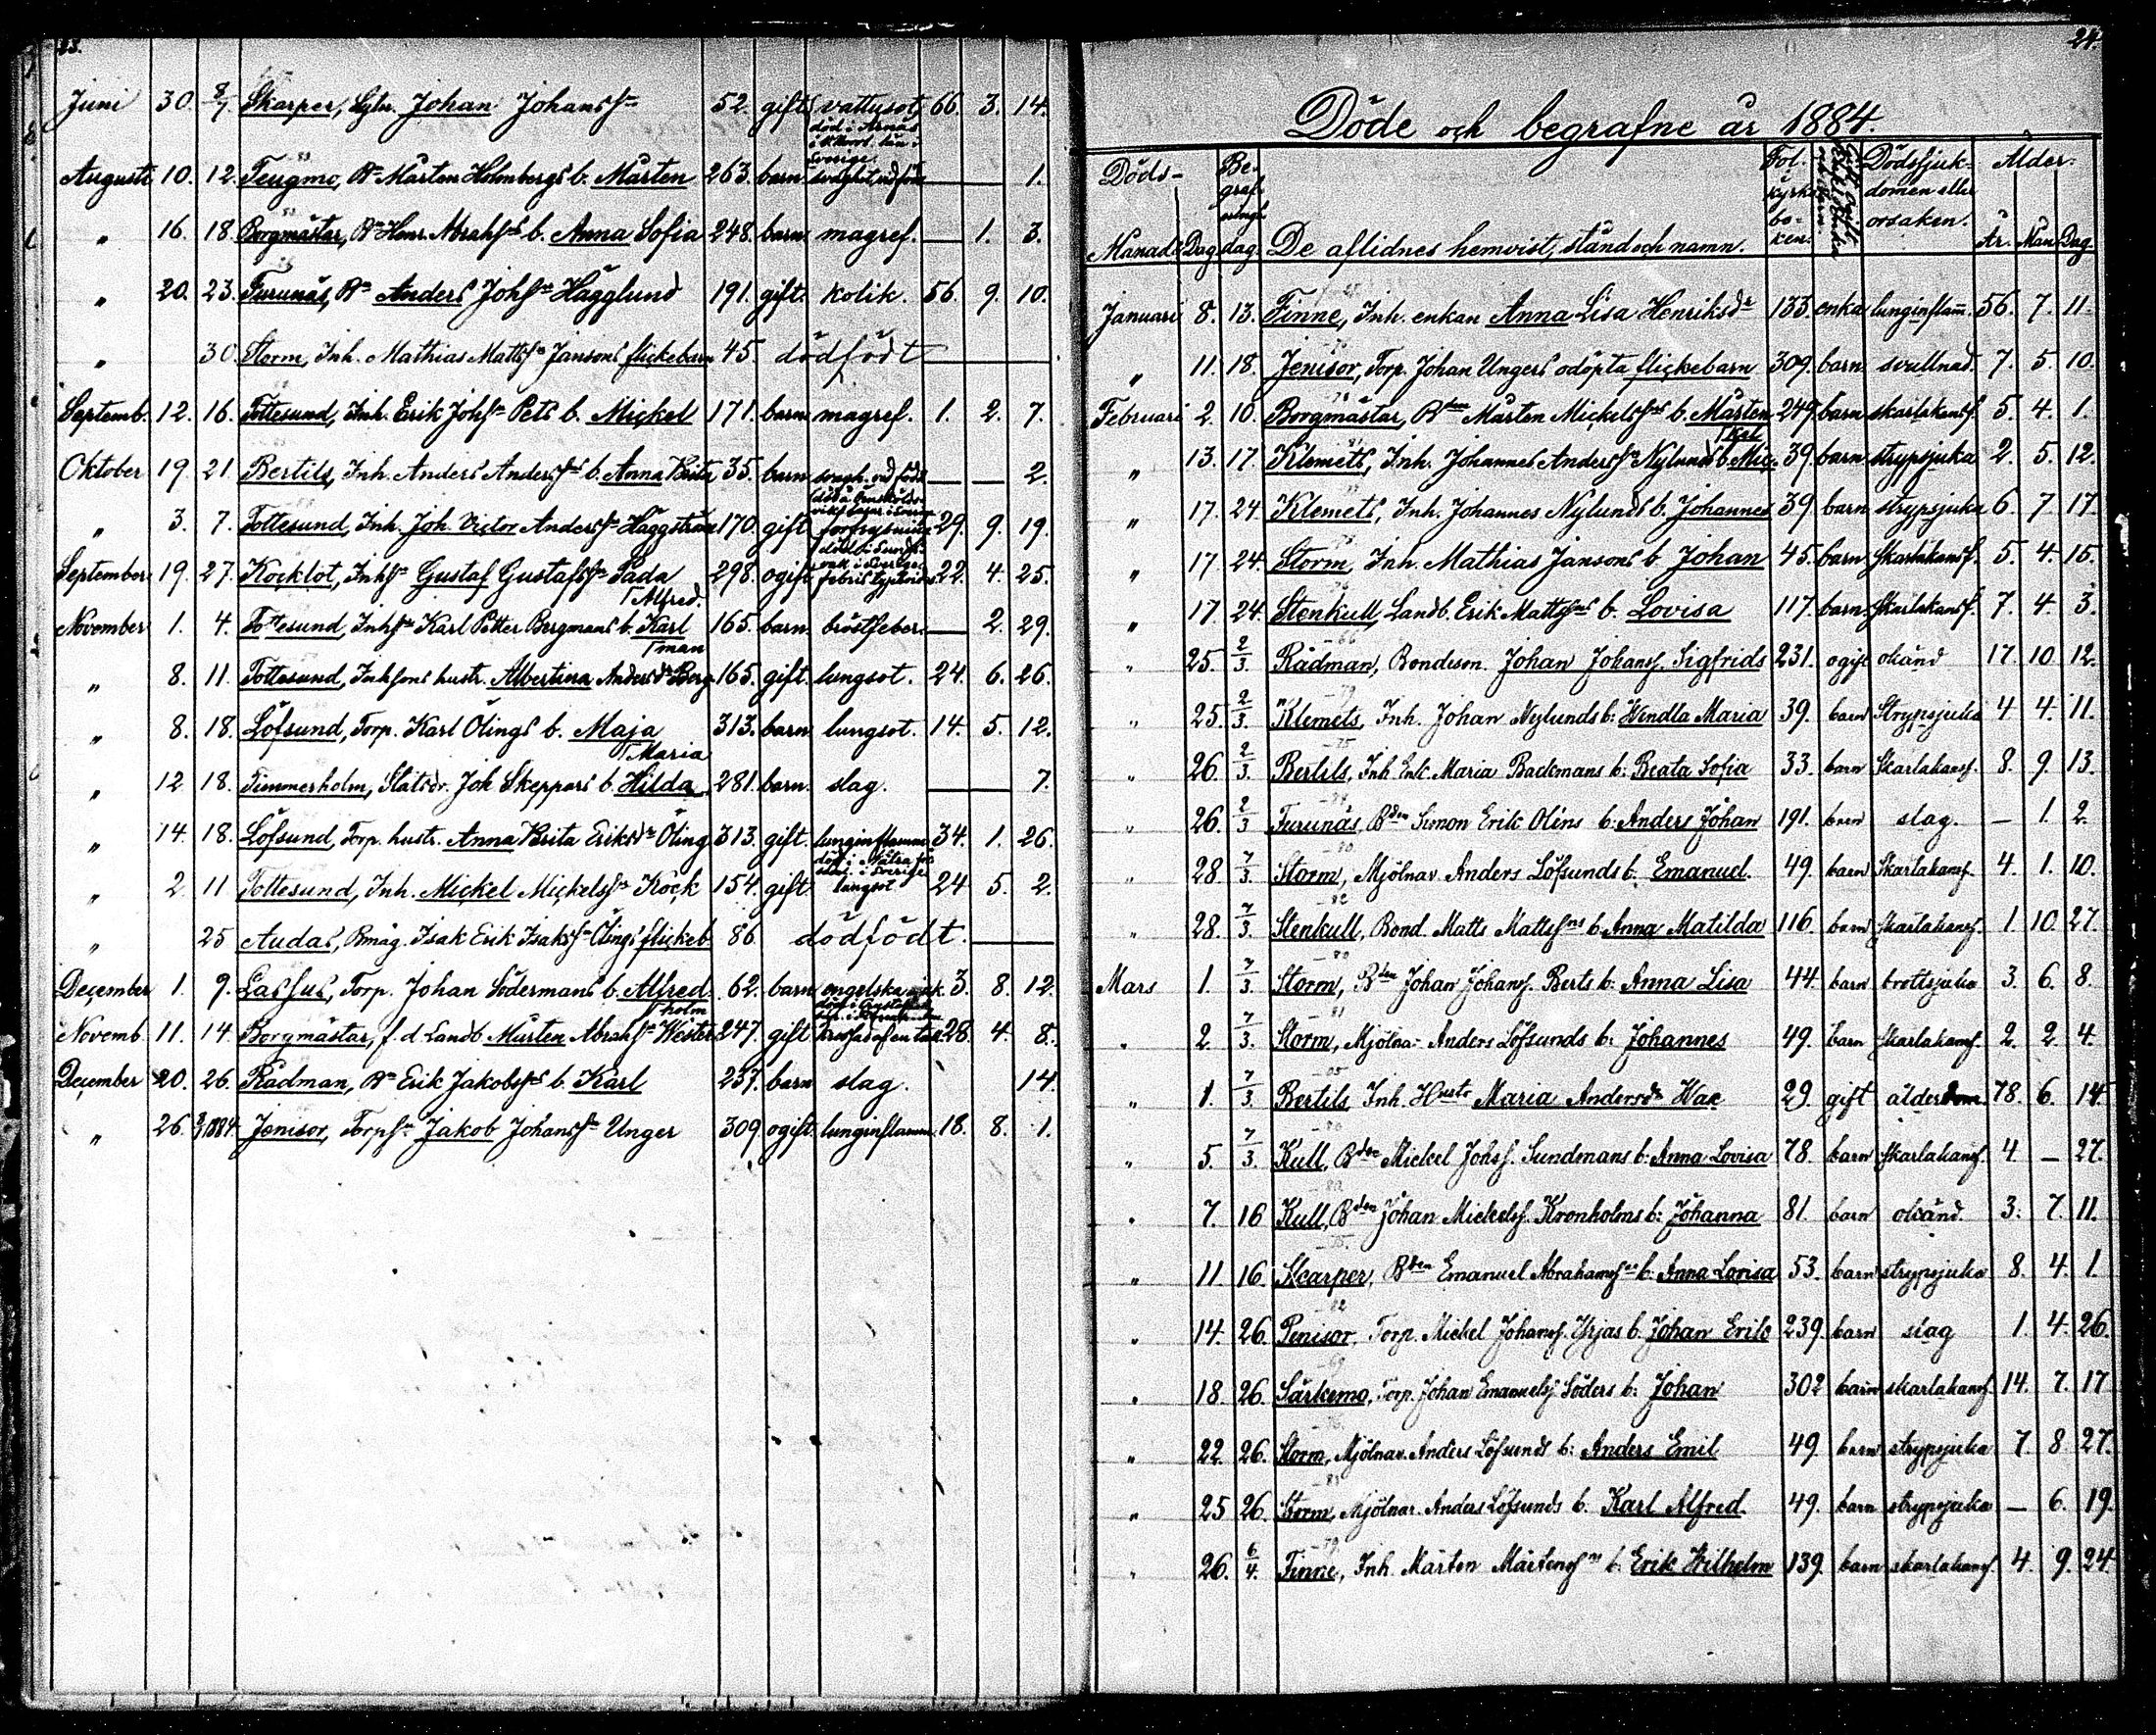 23.
Juni 30. 8/7. Skarper, Sytn. Johan Johansson 52. gift vattusot, 66. 3. 14.
död i Arnäs
Sverige.
Augusti 10. 12. Teugmo, Bn Mårten Holmbergs b. Mårten 263. barn svaghet vid föds — — 1.
" 16. 18. Borgmästar, Bn Henr. Abrahss b. Anna Sofia 248. barn magref. — 1. 3.
" 20. 23. Furunäs, Bn Anders Johssn Hägglund 191. gift. kolik. 56. 9. 10.
" 30. Storm, Inh. Mathias Mattssn Jansons flickebarn 45. dödfödt — — —
Septemb. 12. 16. Tottesund, Inh. Erik Johssn Pets b. Mickel 171. barn magref. 1. 2. 7.
Oktober 19. 21. Bertils, Inh. Anders Anderss b. Anna Brita 35. barn svagh. vid föds — — 2.
" 3. 7. Tottesund, Inh. Joh. Victor Anderssn Häggström 170. gift 29. 9. 19.
September 19. 27. Kocklot, Inhsn Gustaf Gustafssn Pada 298. ogift febris typhoid. 22. 4. 25.
Alfred.
November 1. 4. Tottesund, Inhsn Karl Petter Bergmans b. Karl 165. barn bröstfeber. — 2. 29.
man
" 8. 11. Tottesund, Inhsons hustr. Albertina Andersdr Berg 165. gift. lungsot. 24. 6. 26.
" 8. 18. Löfsund, Torp. Karl Ölings b. Maja 313. barn lungsot. 14. 5. 12.
Maria
" 12 18. Timmerholm, Joh Skeppars b. Hilda 281. barn. slag. — — 7.
" 14. 18. Löfsund, Torp. hustr. Anna Brita Eriksdr Öling 313. gift. lunginflamm. 34. 1. 26.
död i Nätra
i Sverige
" 2 11 Tottesund, Inh. Mickel Mickelssn Kock 154. gift lungsot 24 5. 2.
" 25 Audas, Bmåg. Isak Erik Isakssn Ölings flickeb. 86. dödfödt. — —
December 1. 9. Lassus, Torp. Johan Södermans b. Alfred. 62. barn engelska sjuk. 3. 8. 12.
holm
Novemb. 11. 14. Borgmästar, f.d. Landb. Mårten Abrahssn Wester 247. gift 28. 4. 8.
December 20. 26. Rådman, Bn Erik Jakobss b. Karl 237. barn slag. 14.
" 26. 3/1 1884. Jenisor, Torpsn Jakob Johanssn Unger 309. ogift. lunginflamm. 18. 8. 1.
24.
Döde och begrafne år 1884.
Döds- Be- Fol. Dödssjuk- Ålder.
graf- kyrko domen eller
nings bo- orsaken.
Månad. Dag dag. De aflidnes hemvist, stånd och namn. ken. År. Mån Dag.
Januari 8. 13. Finne, Inh. enkan Anna Lisa Henriksdr 133. enka lunginflam. 56. 7. 11.
" 11. 18. Jenisor, Torp. Johan Ungers odöpta flickebarn 309. barn svullnad. 7. 5. 10.
Februari 2. 10. Borgmästar, Bden Mårten Mickelss b. Mårten 249. barn skarlakansf. 5. 4. 1.
kel
" 13. 17. Klemets, Inh. Johannes Anderssn Nylunds b. Mic- 39. barn strypsjuka 2. 5. 12.
" 17. 24. Klemets, Inh. Johannes Nylunds b. Johannes 39. barn strypsjuka 6. 7. 17.
" 17. 24. Storm, Inh. Mathias Jansons b. Johan 45. barn skarlakansf. 5. 4. 15.
" 17. 24. Stenkull, Landb. Erik Mattss b. Lovisa 117. barn skarlakansf. 7. 4. 3.
" 25. 2/3. Rådman, Bondeson. Johan Johanss. Sigfrids 231. ogift okänd 17 10 12.
" 25. 2/3. Klemets, Inh. Johan Nylunds b: Wendla Maria 39. barn Strypsjuka 4 4. 11.
" 26. 2/3. Bertils, Inh Enk. Maria Backmans b: Beata Sofia 33. barn Skarlakansf. 8. 9. 13.
" 26. 2/3 Furunäs, Bden Simon Erik Olins b: Anders Johan 191. barn slag. — 1. 2.
" 28. 7/3. Storm, Mjölnar Anders Löfsunds b. Emanuel. 49. barn Skarlakansf. 4. 1. 10.
" 28. 7/3. Stenkull, Bond. Matts Mattss b. Anna Matilda 116. barn skarlakansf. 1 10. 27.
Mars 1. 7/3. Storm, Bden Johan Johanss. Berts b: Anna Lisa 44. barn brottsjuka 3. 6. 8.
" 2. 7/3. Storm, Mjölnar Anders Löfsunds b: Johannes 49. barn skarlakansf. 2. 2. 4.
" 1. 7/3. Bertils, Inh. Hustr Maria Andersdr Wax 29. gift ålderdom. 78. 6. 14.
" 5. 7/3. Kull, Bden Mickel Johss. Sundmans b: Anna Lovisa 78. barn skarlakansf. 4 — 27.
" 7. 16 Kull, Bden Johan Mickelss. Kronholms b: Johanna 81. barn okänd. 3. 7. 11.
" 11. 16. Skarper, Bden Emanuel Abrahamss b: Anna Lovisa 53. barn strypsjuka 8. 4. 1.
" 14. 26. Penisor, Torp. Mickel Johanss. Yrjas b. Johan Erik 239. barn slag 1. 4. 26.
" 18. 26. Särkimo, Torp. Johan Emanuelss Söders b: Johan 302 barn skarlakansf. 14. 7. 17
" 22. 26. Storm, Mjölnar. Anders Löfsunds b: Anders Emil 49. barn strypsjuka 7 8 27.
" 25 26. Storm, Mjölnar. Anders Löfsunds b. Karl Alfred. 49. barn strypsjuka — 6. 19.
" 26. 6/4. Finne, Inh. Mårten Mårtenss b. Erik Wilhelm 139. barn skarlakansf. 4. 9. 24.